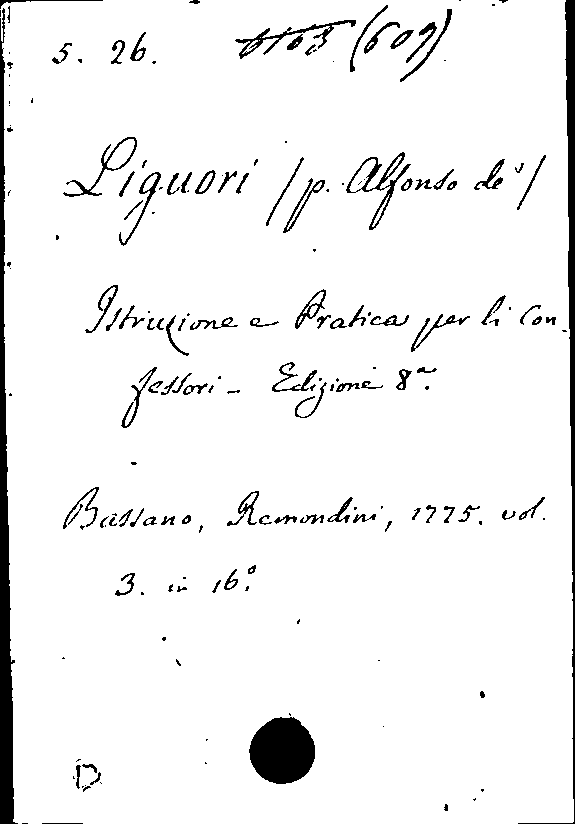 5. 26. 6163 (609)
Liguori /p. Alfonso de'/
Istruzione e Pratica per li Con-
fessori - Edizione 8ª.
Bassano, Remondini, 1775. vol.
3. in 16º.
D